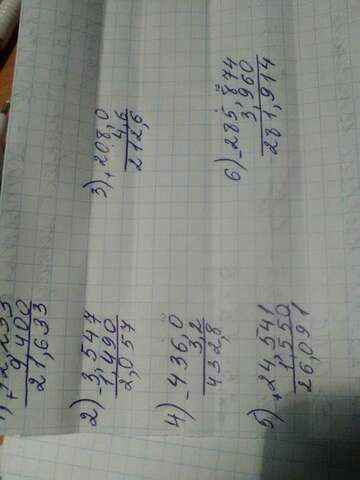 9,400
21,633
2) - 3,547
1,490
2,057
3) + 208,0
4,6
212,6
4) - 436,0
3,2
432,8
5) + 24,541
1,550
26,091
6) - 285,874
3,960
281,914